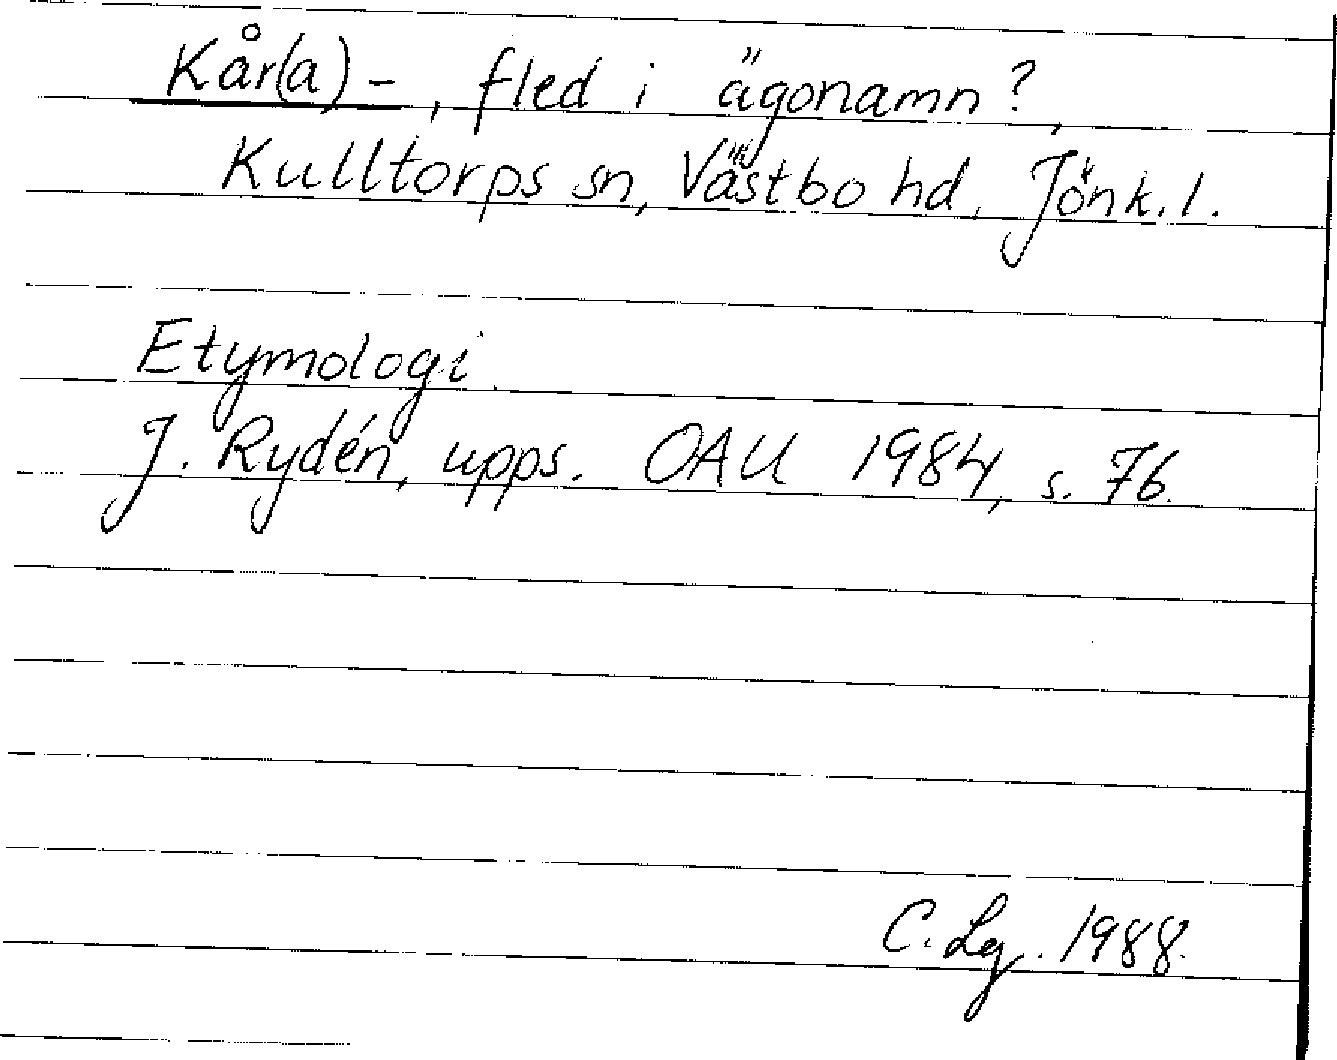 Kår(a)-, fled i ägonamn?,
Kulltorps sn, Västbo hd, Jönk. l.
Etymologi.
J. Rydén, upps. OAU 1984, s. 76.
C. Lg. 1988.